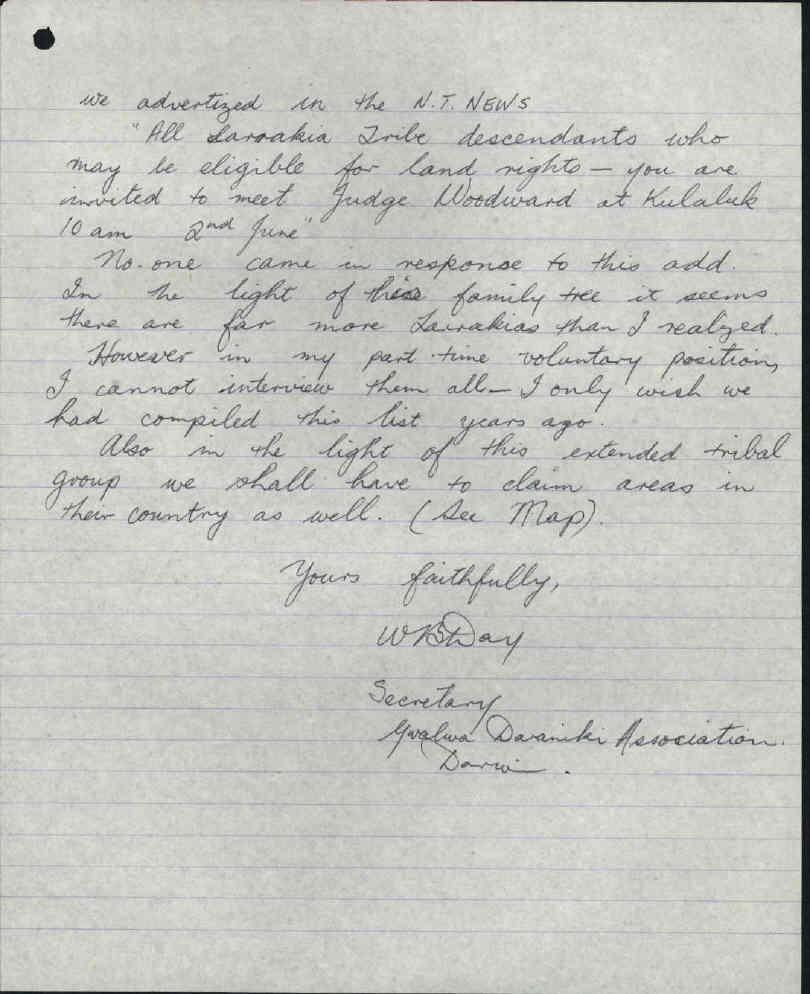 we advertized in the N.T. NEWS
"All Larrakia Tribe descendants who
may be eligible for land rights — you are
invited to meet Judge Woodward at Kulaluk
10 am 2nd June"
No. one came in response to this add.
In the light of this family tree it seems
there are far more Larrakias than I realized.
However in my part-time voluntary position,
I cannot interview them all — I only wish we
had compiled this list years ago.
Also in the light of this extended tribal
group we shall have to claim areas in
their country as well. (See Map).
Yours faithfully,
WBDay
Secretary
Gwalwa Daraniki Association.
Darwin.